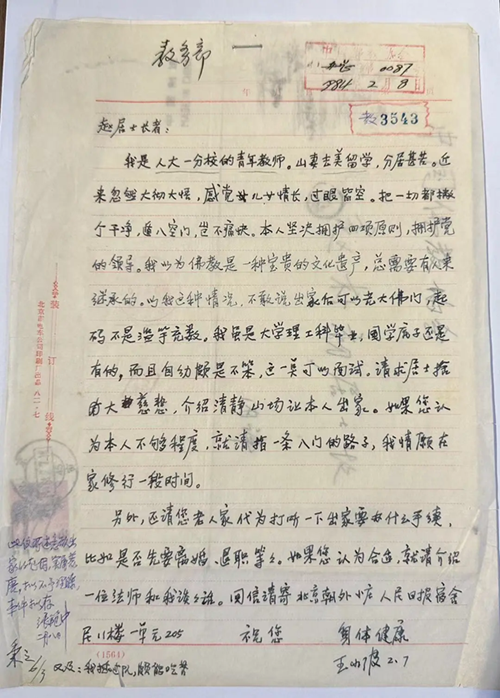 教务部
0087
1984 2 8
教3543
赵居士长者：
我是人大一分校的青年教师。山妻去美留学，分居甚苦。近
来忽然大彻大悟，感觉儿女情长，过眼皆空。把一切都撇
个干净，遁入空门，岂不痛快。本人坚决拥护四项原则，拥护党
的领导。我以为佛教是一种宝贵的文化遗产，总需要有人来
继承的。以我这种情况，不敢说出家后可以光大佛门，起
码不是滥竽充数。我虽是大学理工科毕业，国学底子还是
有的，而且自幼颇是不笨，这一点可以面试，请求居士
大慈悲，介绍清静山场让本人出家。如果您认
为本人不够程度，就请指一条入门的路子，我情愿在
家修行一段时间。
另外，还请您老人家代为打听一下出家要办什么手续，
比如是否先要离婚、退职等等。如果您认为合适，就请介绍
一位法师和我谈谈。回信请寄北京朝外小庄人民日报宿舍
居八楼一单元205 祝您 身体健康
王小波 2.7
又及：我插过队，颇能吃苦
(1564)
装订线